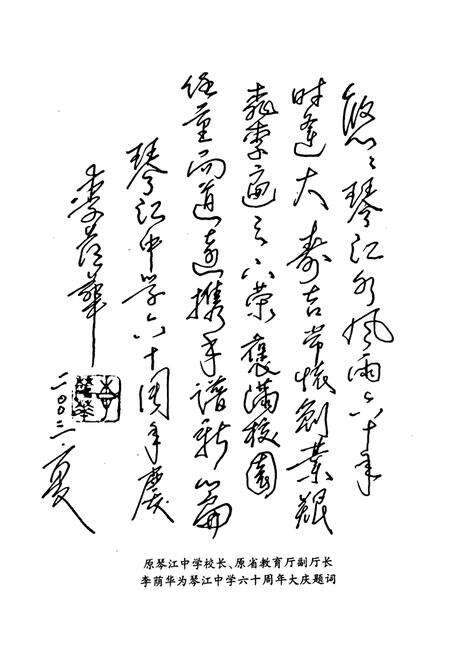 悠々琴江水风雨六十年
时逢大寿吉常怀创业艰
桃李遍天下荣褒满校园
任重而道远携手谱新篇
琴江中学六十周年慶
李荫華
二00二.夏
原琴江中学校长、原省教育厅副厅长
李荫华为琴江中学六十周年大庆题词